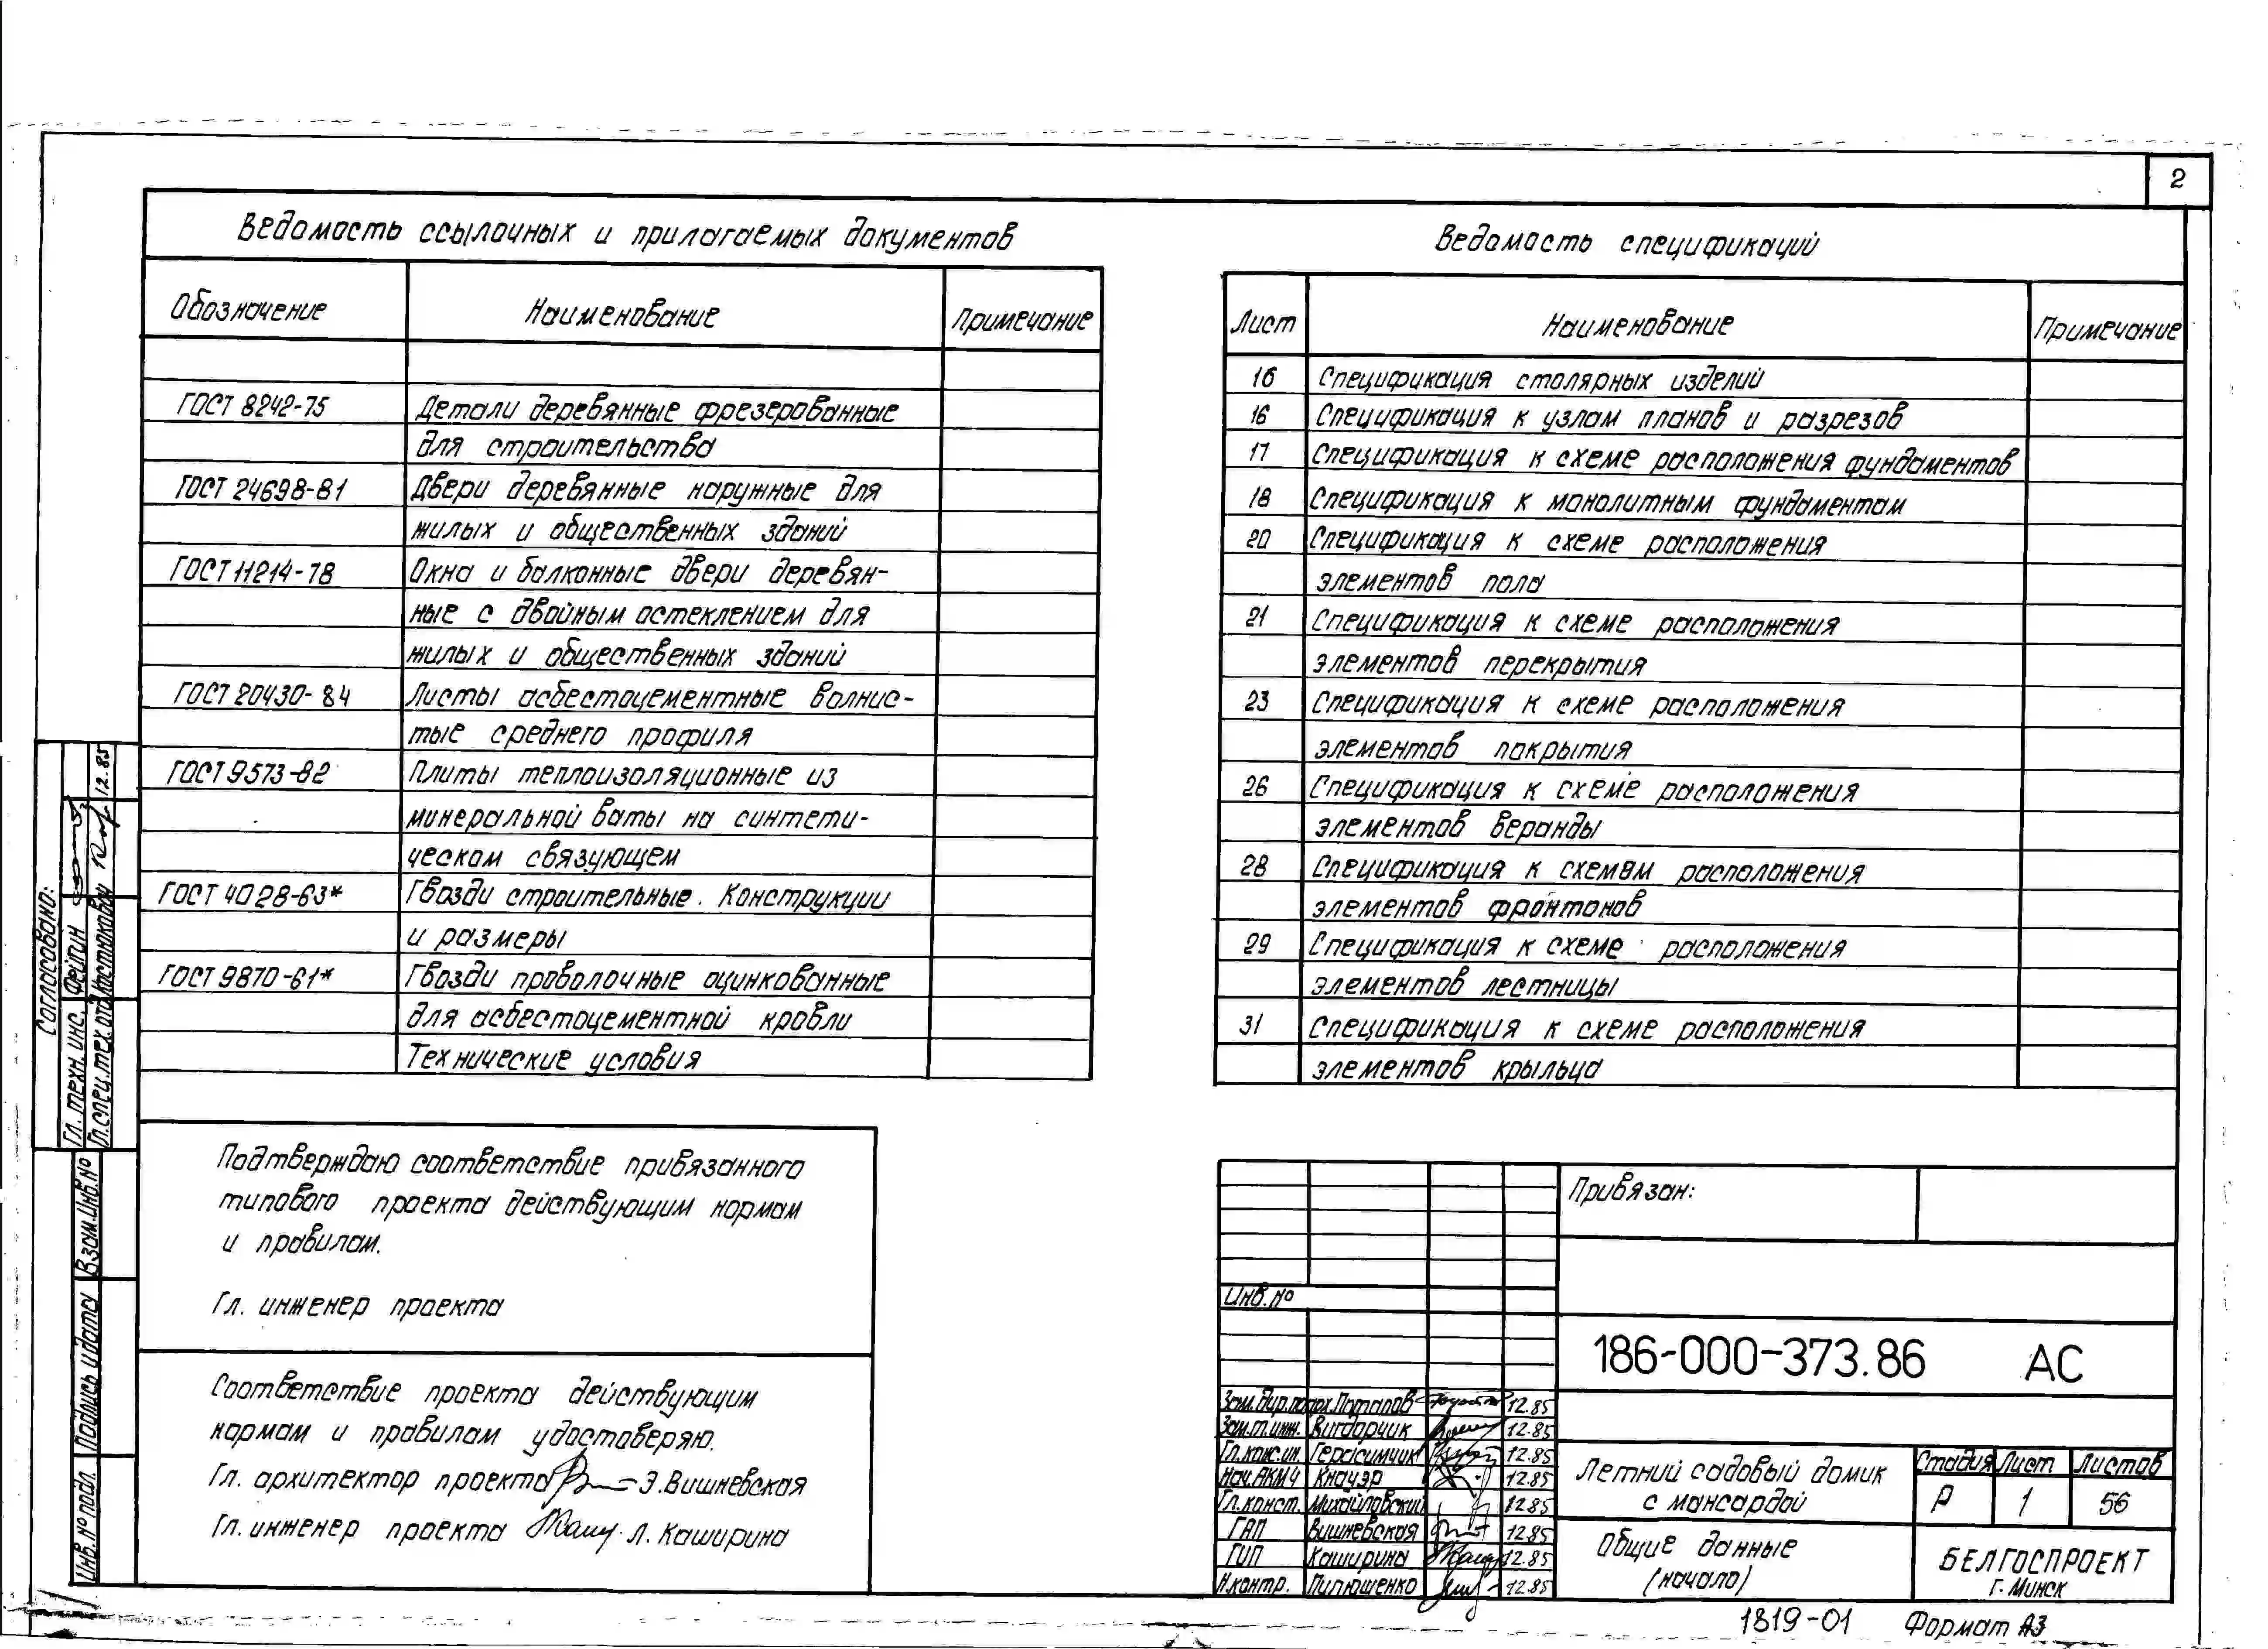 2
Ведомость ссылочных и прилагаемых документов
Обозначение Наименование Примечание
ГОСТ 8242-75 Детали деревянные фрезерованные
для строительства
ГОСТ 24698-81 Двери деревянные наружные для
жилых и общественных зданий
ГОСТ 11214-78 Окна и балконные двери деревян-
ные с двойным остеклением для
жилых и общественных зданий
ГОСТ 20430-84 Листы асбестоцементные волнис-
тые среднего профиля
ГОСТ 9573-82 Плиты теплоизоляционные из
минеральной ваты на синтети-
ческом связующем
ГОСТ 4028-63* Гвозди строительные. Конструкции
и размеры
ГОСТ 9870-61* Гвозди проволочные оцинкованные
для асбестоцементной кровли
Технические условия
Ведомость спецификаций
Лист Наименование Примечание
16 Спецификация столярных изделий
16 Спецификация к узлам планов и разрезов
17 Спецификация к схеме расположения фундаментов
18 Спецификация к монолитным фундаментам
20 Спецификация к схеме расположения
элементов пола
21 Спецификация к схеме расположения
элементов перекрытия
23 Спецификация к схеме расположения
элементов покрытия
26 Спецификация к схеме расположения
элементов веранды
28 Спецификация к схемам расположения
элементов фронтонов
29 Спецификация к схеме расположения
элементов лестницы
31 Спецификация к схеме расположения
элементов крыльца
Согласовано:
Гл. техн. инс. Фейгин
Гл. спец. тех. отд. Костюкович 12.85
Взам. инв. №
Подпись и дата
Инв. № подл.
Подтверждаю соответствие привязанного
типового проекта действующим нормам
и правилам.
Гл. инженер проекта
Соответствие проекта действующим
нормам и правилам удостоверяю.
Гл. архитектор проекта Э. Вишневская
Гл. инженер проекта Л. Каширина
Привязан:
Инв. №
186-000-373.86 АС
Зам. дир. по арх. Потапов 12.85
Зам. гл. инж. Вигдорчик 12.85
Гл. конс. ин. Герасимчик 12.85
Нач. АКМ4 Кнауэр 12.85
Гл. конст. Михайловский 12.85
ГАП Вишневская 12.85
ГИП Каширина 12.85
Н. контр. Пилюшенко 12.85
Летний садовый домик
с мансардой
Стадия Лист Листов
Р 1 56
Общие данные
(начало)
БЕЛГОСПРОЕКТ
г. Минск
1819-01 Формат А3